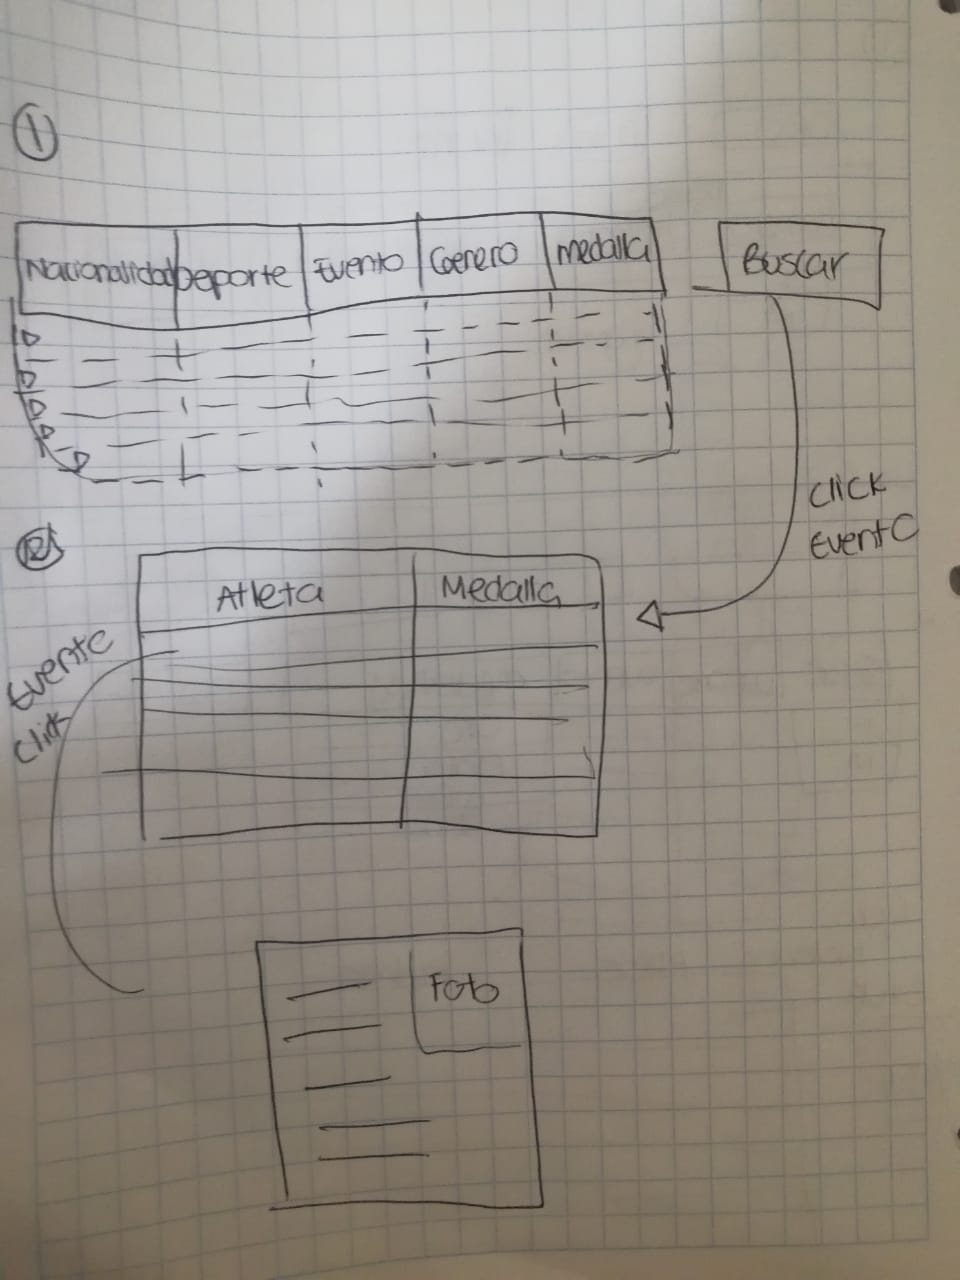 1
Nacionalidad Deporte Evento Genero Medalla Buscar
Click
EventC
2
Atleta Medalla
EventC
Click
Foto